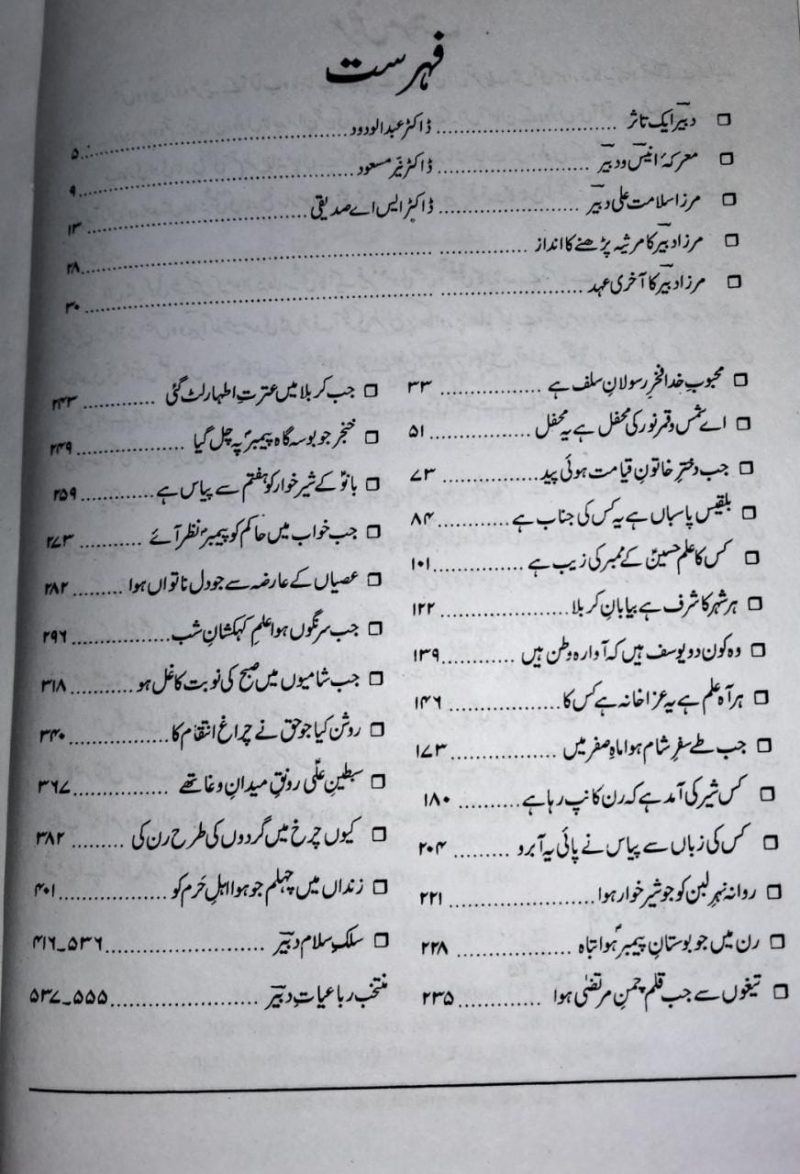 فہرست
□ دبیر ایک تاثر ........ ڈاکٹر عبدالودود ........ ۵
□ معرکۂ انیس و دبیر ........ ڈاکٹر نیر مسعود ........ ۹
□ مرزا سلامت علی دبیر ........ ڈاکٹر ایس اے صدیقی ........ ۱۳
□ مرزا دبیر کا مرثیہ پڑھنے کا انداز ........ ۲۸
□ مرزا دبیر کا آخری عہد ........ ۳۰
□ محبوبِ خدا فخرِ رسولانِ سلف ہے ........ ۳۳
□ اے شمس و قمر نور کی محفل ہے یہ محفل ........ ۵۱
□ جب دخترِ خاتونِ قیامت ہوئی پید ........ ۷۳
□ بلقیس پاسباں ہے یہ کس کی جناب ہے ........ ۸۴
□ کس کا علم حسینؑ کے ممبر کی زیب ہے ........ ۱۰۱
□ ہر شہر کا شرف ہے بیابانِ کربلا ........ ۱۲۲
□ وہ کون دو یوسف ہیں کہ آوارہ وطن ہیں ........ ۱۳۹
□ ہر آہ علم ہے یہ عزا خانہ ہے کس کا ........ ۱۴۶
□ جب طے سفرِ شام ہوا ماہِ صفر میں ........ ۱۷۳
□ کس شیر کی آمد ہے کہ رن کانپ رہا ہے ........ ۱۸۰
□ کس کی زباں سے پیاس نے پائی یہ آبرو ........ ۲۰۴
□ روانہ نہرِ لبن کو جو شیر خوار ہوا ........ ۲۲۱
□ رن میں جو بوستانِ پیمبرؐ ہوا تباہ ........ ۲۲۸
□ تیغوں سے جب قلم چمنِ مرتضیٰ ہوا ........ ۲۳۵
□ جب کربلا میں عترتِ اطہار لٹ گئی ........ ۲۴۳
□ خنجر جو بوسہ گاہ پیمبرؐ پہ چل گیا ........ ۲۴۹
□ بانوؑ کے شیر خوار کو ہفتم سے پیاس ہے ........ ۲۵۹
□ جب خواب میں حاکم کو پیمبرؐ نظر آئے ........ ۲۷۳
□ عصیاں کے عارضہ سے جو دل ناتواں ہوا ........ ۲۸۲
□ جب سرنگوں ہوا علمِ کہکشانِ شب ........ ۲۹۶
□ جب شامیوں میں صبح کی نوبت کا غل ہو ........ ۳۱۸
□ روشن کیا جو حق نے چراغ انتقام کا ........ ۳۴۰
□ سبطینِ علیؑ رونقِ میدانِ وغا تھے ........ ۳۶۷
□ کیوں چرخ میں گردوں کی طرح رن کی ........ ۳۸۲
□ زنداں میں چہلم جو ہوا اہلِ حَرم کو ........ ۴۰۱
□ سلکِ سلام دبیر ........ ۵۳۶۔۴۱۶
□ منتخب رباعیاتِ دبیر ........ ۵۵۵۔۵۳۷